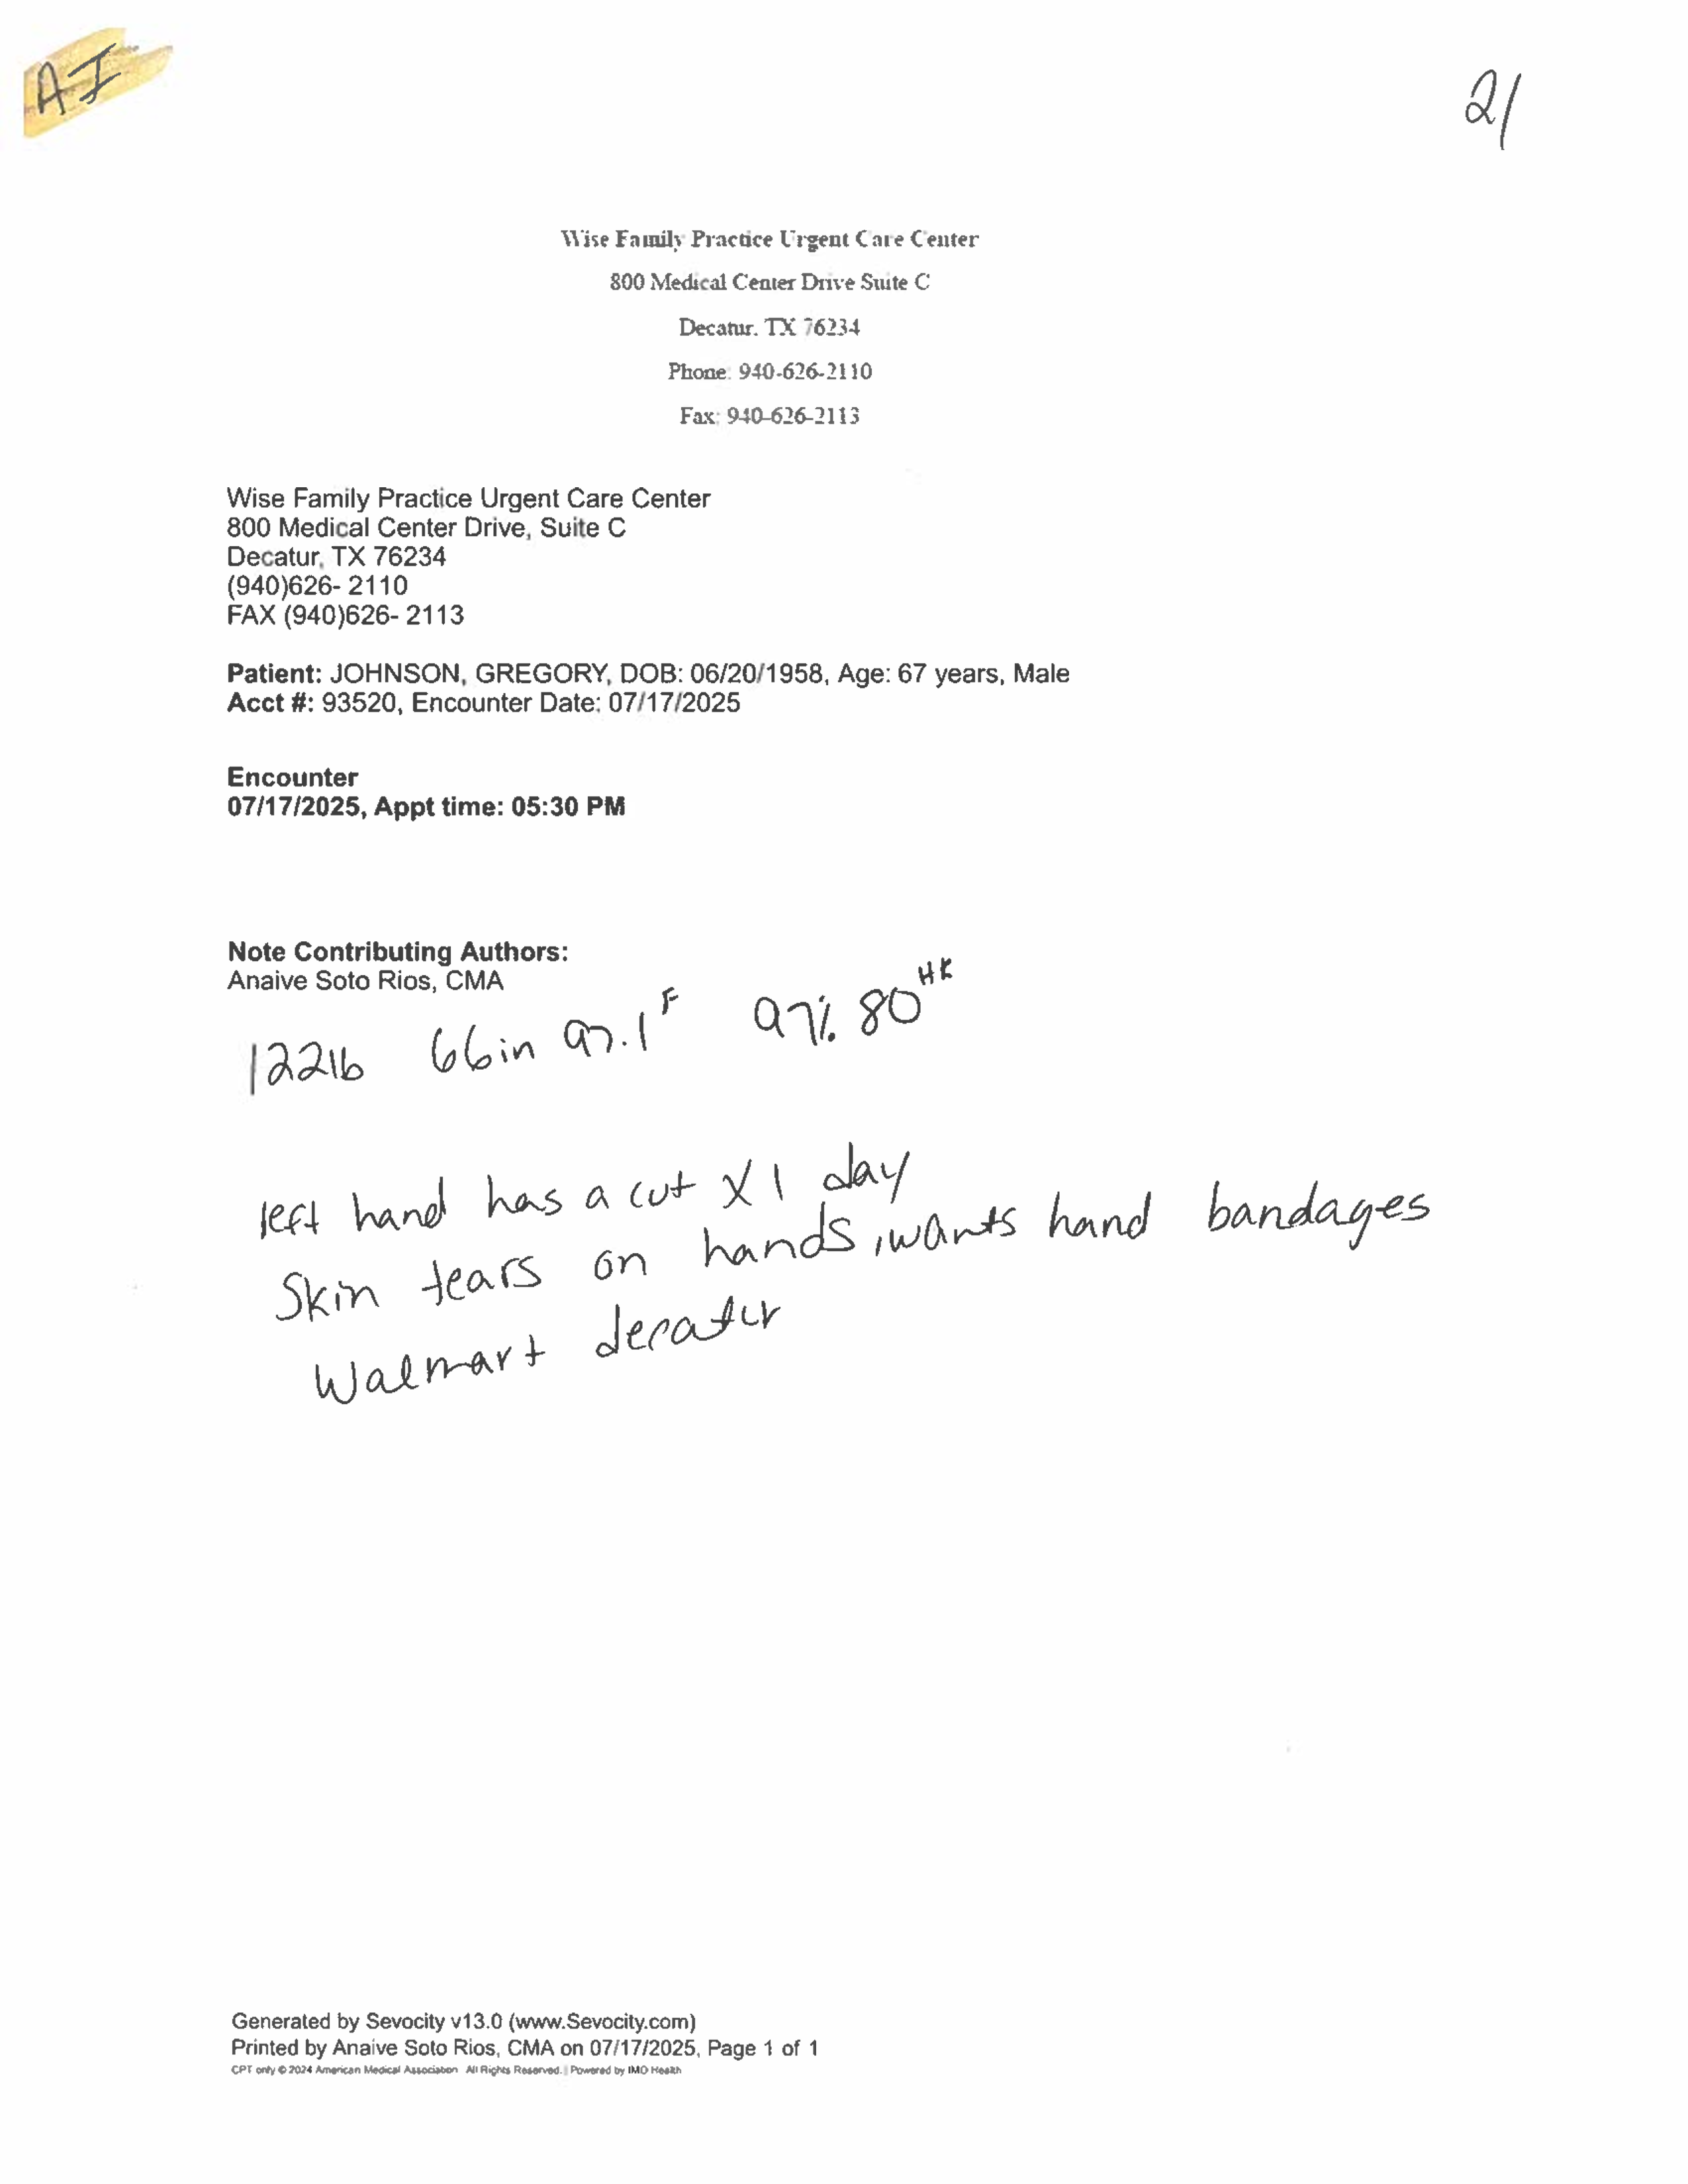 AI
21
Wise Family Practice Urgent Care Center
800 Medical Center Drive Suite C
Decatur, TX 76234
Phone: 940-626-2110
Fax: 940-626-2113
Wise Family Practice Urgent Care Center
800 Medical Center Drive, Suite C
Decatur, TX 76234
(940)626- 2110
FAX (940)626- 2113
Patient: JOHNSON, GREGORY, DOB: 06/20/1958, Age: 67 years, Male
Acct #: 93520, Encounter Date: 07/17/2025
Encounter
07/17/2025, Appt time: 05:30 PM
Note Contributing Authors:
Anaive Soto Rios, CMA
122lb 66in 97.1 F 97% 80 HR
left hand has a cut X 1 day
Skin tears on hands, wants hand bandages
Walmart decatur
Generated by Sevocity v13.0 (www.Sevocity.com)
Printed by Anaive Soto Rios, CMA on 07/17/2025, Page 1 of 1
CPT only © 2024 American Medical Association All Rights Reserved. | Powered by IMO Health